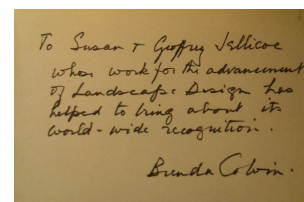 To Susan & Geoffrey Jellicoe
whose work for the advancement
of Landscape Design has
helped to bring about its
world-wide recognition.
Brenda Colvin.